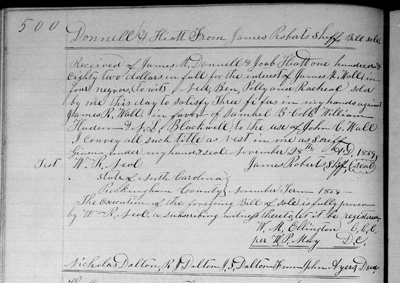 500
Donnell & Hiatt From James Roberts Shff Bill sale
Received of James N. Donnell & Joab Hiatt one hundred &
Eighty two dollars in full for the interest of James R. Wall in
four negroes, to wit, Ned, Ben, Polly and Racheal sold
by me this day to satisfy Three fi fas in my hands against
James R. Wall in favor of Samuel B. Cobb William
& N. L. Blackwell to the use of John C. Wall
I convey all such title as vest in me as Sheriff
Given under my hand & seal November 28th
Test W. R. James Roberts Shff (seal)
State of North Carolina
Rockingham County November Term
The Execution of the foregoing Bill of sale is fully proven
by W. R. a subscribing witness thereto let it be registered
W. M. Ellington C.C.C.
per W. P. May D.C.
Nicholas Dalton, R J Dalton J. S. Dalton From John Ayers Deed